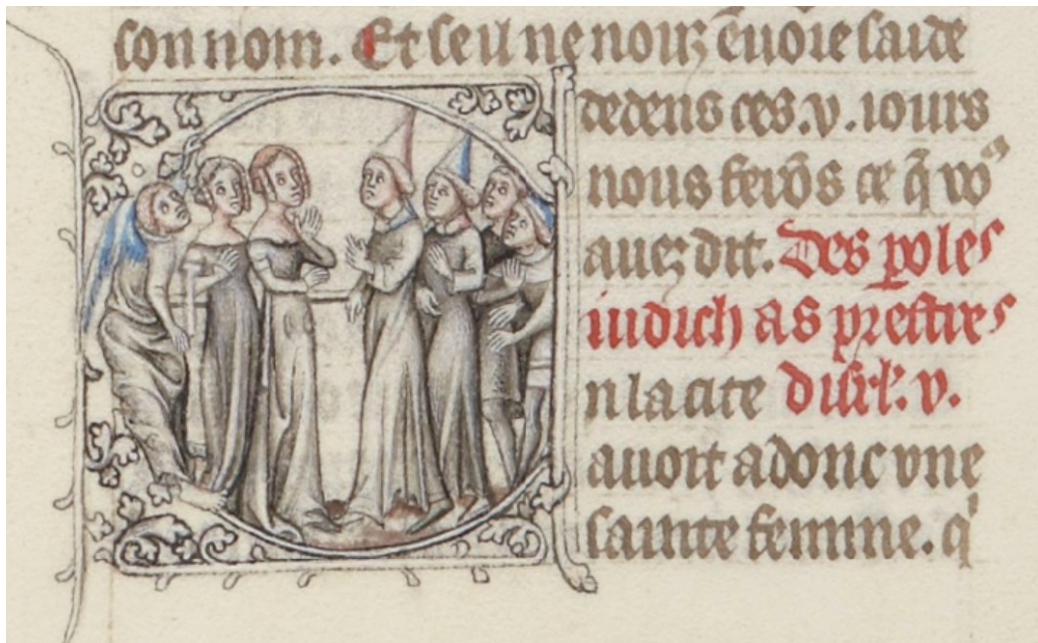 son nom. Et se il ne noꝰ ẽuoie saide
dedens ces .v. iours
nous ferõs ce q̃ voꝰ
auez dit. Des ꝑoles
iudich as prestres
n la cite disrl'. v.
auoit adonc vne
sainte femme. q'